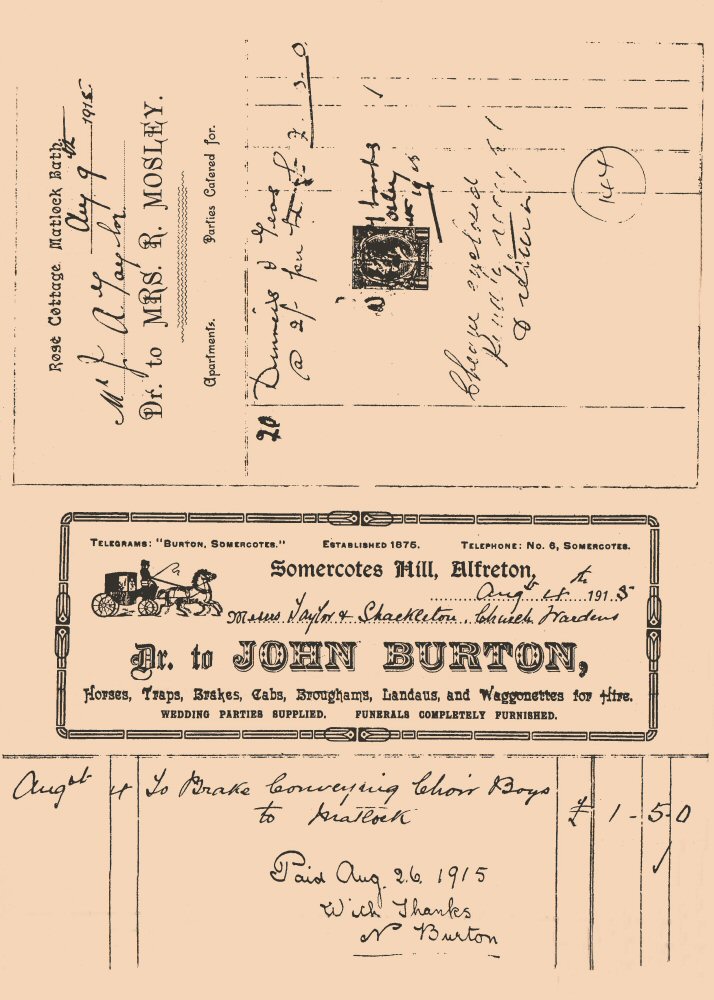 Rose Cottage, Matlock Bath,
Aug 9 1915
Mr J. A. Taylor
Dr. to MRS. R. MOSLEY.
Apartments. Parties Catered for.
20 Dinners & Teas
@ 2/-
Thanks
1915
Cheque enclosed
144
TELEGRAMS: "BURTON, SOMERCOTES." ESTABLISHED 1875. TELEPHONE: NO. 6, SOMERCOTES.
Somercotes Hill, Alfreton,
Augst 4th 1915
Messrs Taylor & Shackleton. Church Wardens
Dr. to JOHN BURTON,
Horses, Traps, Brakes, Cabs, Broughams, Landaus, and Waggonettes for Hire.
WEDDING PARTIES SUPPLIED. FUNERALS COMPLETELY FURNISHED.
Augst 4 To Brake Conveying Choir Boys
to Matlock £ 1 - 5 - 0
Paid Aug. 26 1915
With Thanks
N Burton